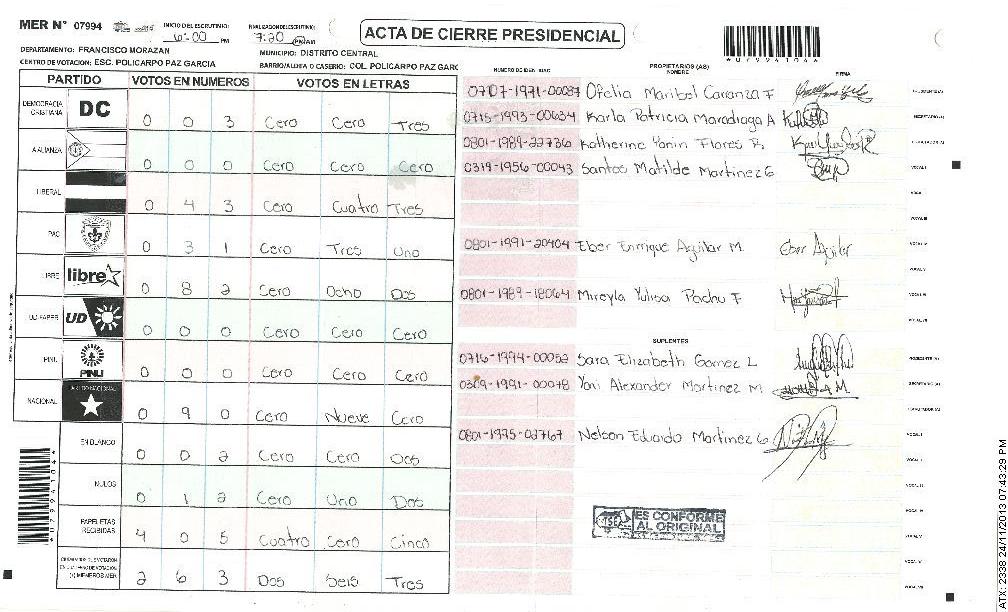 MER N° 07994
INICIO DEL ESCRUTINIO:
6:00 PM
FINALIZACION DEL ESCRUTINIO:
7:20 PM AM
ACTA DE CIERRE PRESIDENCIAL
DEPARTAMENTO: FRANCISCO MORAZAN
MUNICIPIO: DISTRITO CENTRAL
CENTRO DE VOTACION: ESC. POLICARPO PAZ GARCIA
BARRIO/ALDEA O CASERIO: COL. POLICARPO PAZ GARC
PARTIDO VOTOS EN NUMEROS VOTOS EN LETRAS
DEMOCRACIA CRISTIANA DC 0 0 3 Cero Cero Tres
ALIANZA 0 0 0 Cero Cero Cero
LIBERAL 0 4 3 Cero Cuatro Tres
PAC 0 3 1 Cero Tres Uno
LIBRE libre 0 8 2 Cero Ocho Dos
UD-FAPER UD 0 0 0 Cero Cero Cero
PINU PINU 0 0 0 Cero Cero Cero
NACIONAL PARTIDO NACIONAL 0 9 0 Cero Nueve Cero
EN BLANCO 0 0 2 Cero Cero Dos
NULOS 0 1 2 Cero Uno Dos
PAPELETAS RECIBIDAS 4 0 5 Cuatro Cero Cinco
(+) MIEMBROS MER 2 6 3 Dos Seis Tres
NUMERO DE IDENTIDAD PROPIETARIOS (AS) NOMBRE FIRMA
Ofelia Maribel Caranza F
0715-1993-00634 Karla Patricia Maradiaga A
0801-1989-22736 Katherine Yanin Flores R.
0319-1956-00043 Santos Matilde Martinez G
0801-1991-20404 Eber Enrique Aguilar M. Eber Aguilar
0801-1989-18064 Mireyla Yulisa Pachu F
SUPLENTES
0716-1994-00052 Sara Elizabeth Gomez L
Yoni Alexander Martinez M.
0801-1975-02767 Nelson Eduardo Martinez G
TSE ES CONFORME AL ORIGINAL
ATX: 2338 24/11/2013 07:43:29 PM